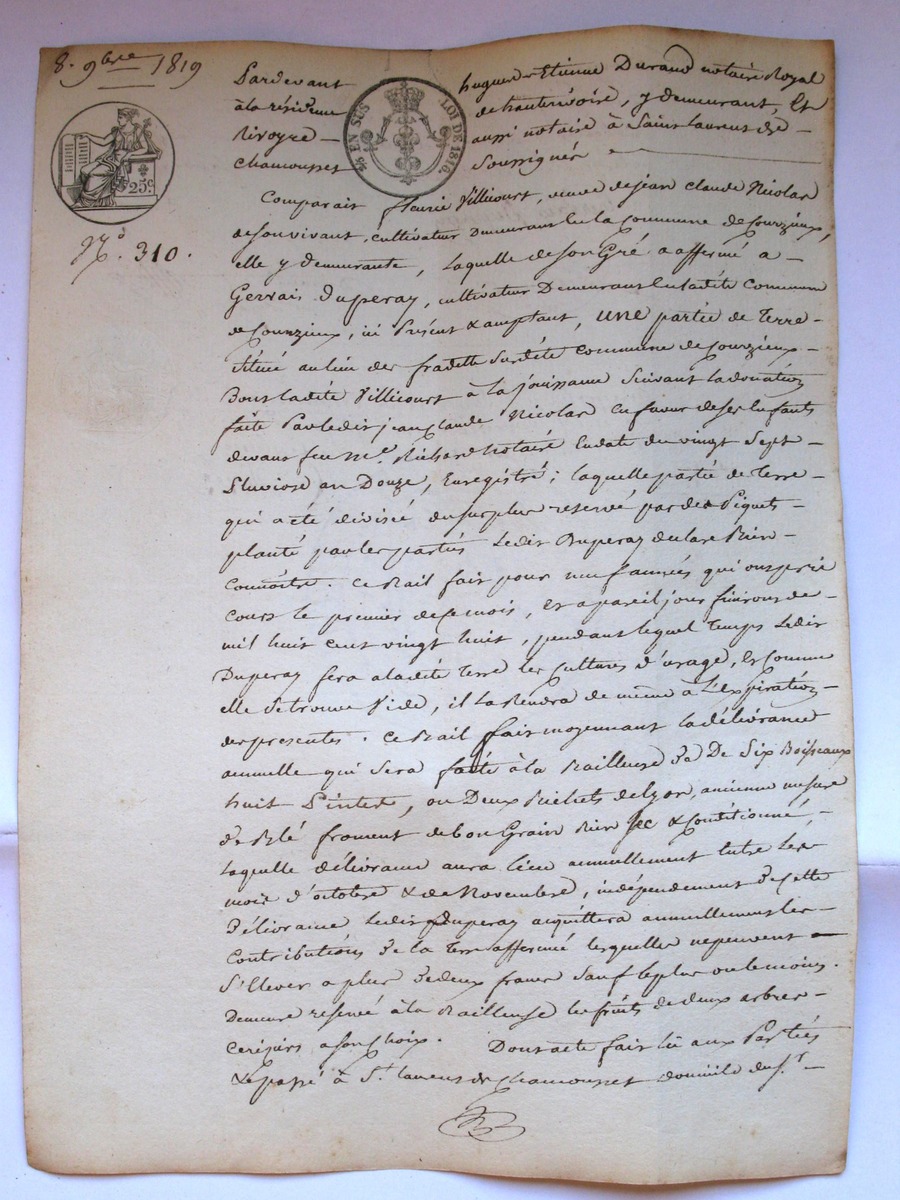 8. 9bre 1819
25c
No. 310.
¼ EN SUS LOI DE 1816.
Pardevant hugues Etienne Durand notaire Royal
à la résidence de hauterivoire, y demeurant, Et
Rivoyre aussi notaire à Saint Laurent de
Chamousset Soussignés
Comparait fleurie Villicourt, veuve de jean claude Nicolas
de son vivant, cultivateur Demeurant En la Commune de Courzieux,
elle y demeurante, laquelle de son Gré a affermé a
Gervais Duperay, cultivateur Demeurant En ladite Commune
de Courzieux, ici Présent & acceptant, une partie de Terre
Située au lieu des fradette Susdite commune de Courzieux
Dont ladite Villicourt à la jouissance Suivant la donation
faite Par ledit jean Claude Nicolas En faveur de ses Enfants
devant feu me. Richard Notaire En date du vingt Sept
Pluviose an Douze, Enregistré; laquelle partie de Terre
qui a été divisée du surplus reservé par des Piquets
planté par les parties Ledit Duperay declare Bien
Connoitre. Ce Bail fait pour neuf années qui ont prie
cours le premier de Ce mois, Et a pareil jour finiront de
mil huit cent vingt huit, pendant lequel Temps Ledit
Duperay fera a ladite Terre les Cultures d'usage, Et Comme
elle Se trouve Vide, il La Rendra de même à L'Expiration
des presentes. Ce Bail fait moyennant la délivrance
annuelle qui Sera faite à la Bailleuse De Six Boisseaux
huit Pintes, ou Deux Bichets de lyon, ancienne mesure
De Blé froment de bon Grain Bien Sec & Conditionné,
laquelle délivrance aura lieu annuellement Entre Les
mois d'octobre & de Novembre, indépendement De Cette
Délivrance Ledit Duperay acquittera annuellement les
Contributions De la Terre affermé lesquelles ne peuvent
S'Elever a plus De deux francs Sauf le plus ou le moins.
Demeure reservé à la Bailleuse les fruits de deux arbres
Cerisiers a son Choix. Dont acte fait lû aux Parties
& passé à St. Laurent de Chamousset domicile du sr.